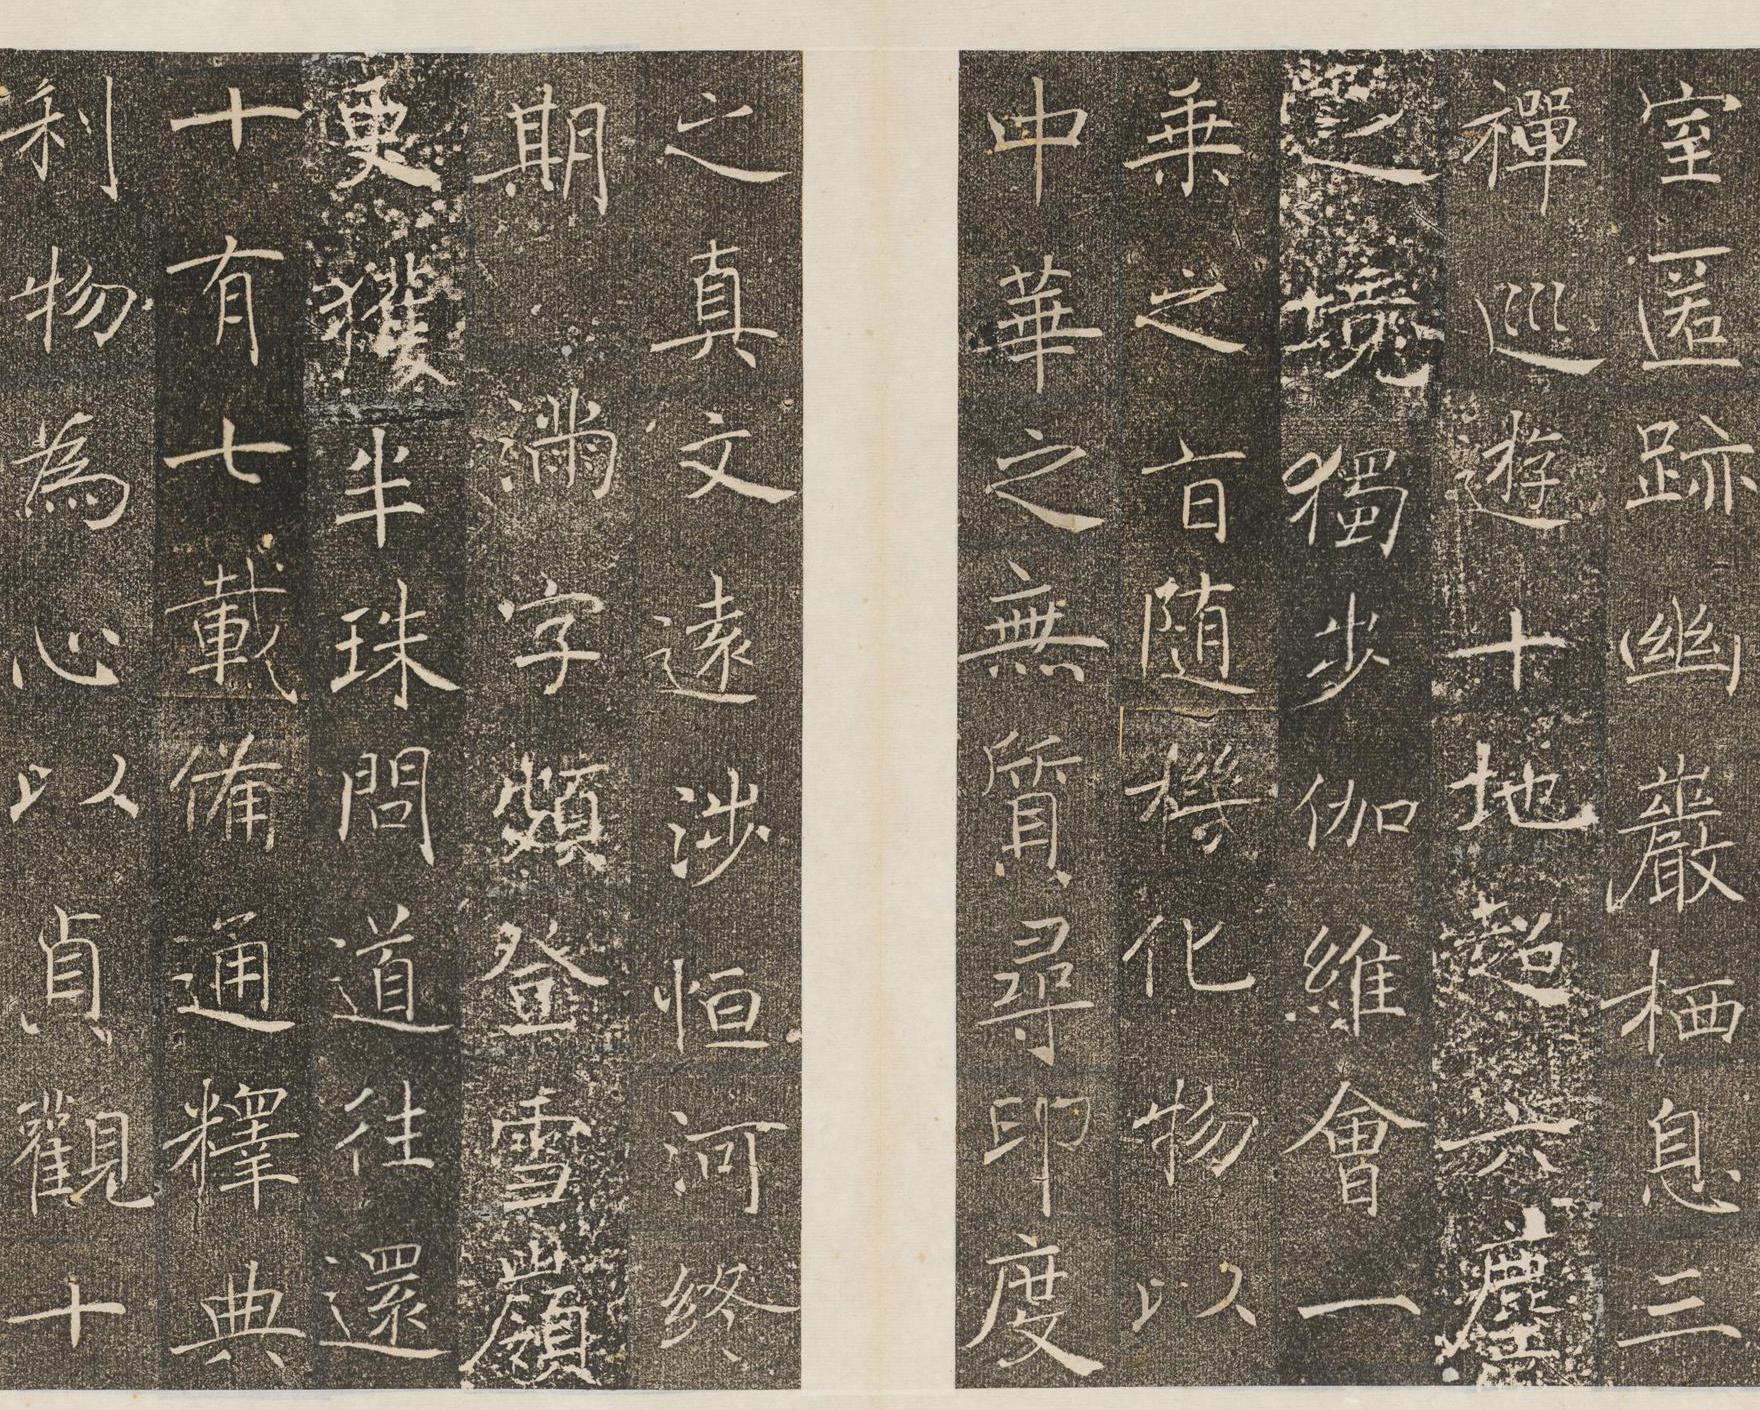 室匿跡幽巖栖息三
禪巡遊十地超六塵
之境獨步伽維會一
乗之旨随機化物以
中華之無質尋印度
之真文遠涉恒河終
期滿字頻登雪嶺
更獲半珠問道往還
十有七載備通釋典
利物為心以貞觀十